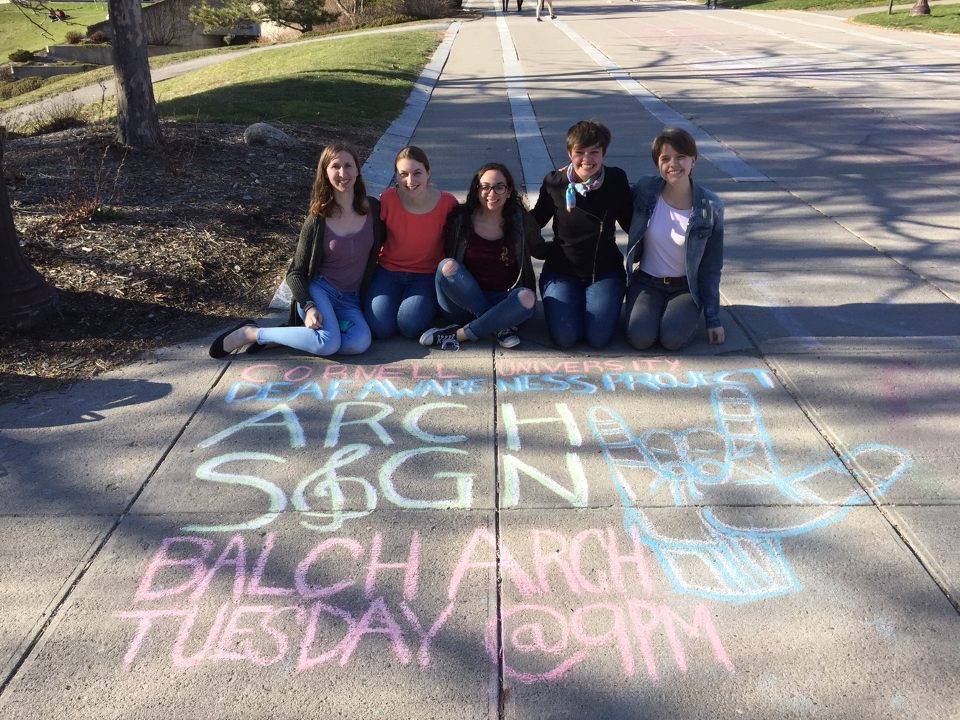 CORNELL UNIVERSITY
DEAF AWARENESS PROJECT
ARCH
SIGN
BALCH ARCH
TUESDAY @ 9PM